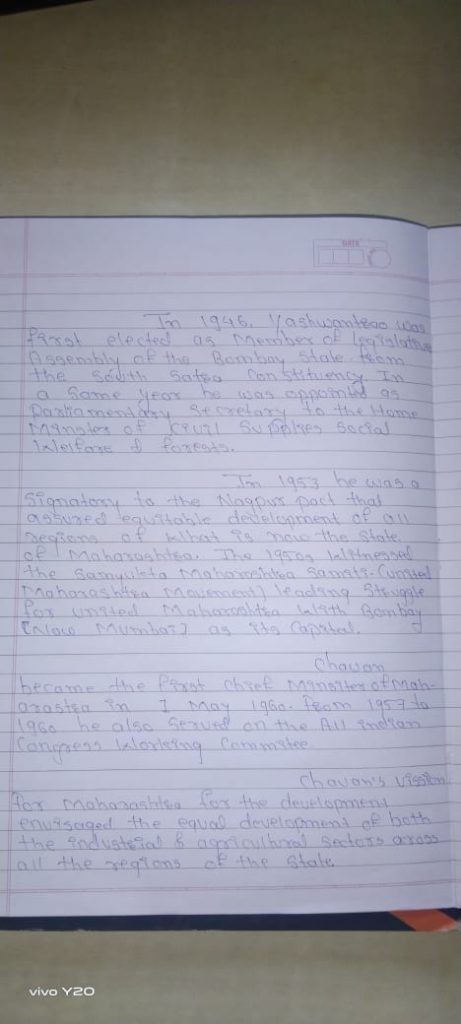 DATE
In 1946, Yashwantrao was
first elected as Member of Legislative
Assembly of the Bombay State from
the South Satra Constituency In
a Same year he was appointed as
Parliamentary Secretary to the Home
Minister of Civil Supplies Social
Welfare & forests.
In 1953 he was a
Signatory to the Nagpur pact that
assured equitable development of all
regions of What is now the State
of Maharashtra. The 1950s Witnessed
the Samyukta Maharashtra Samiti. (United
Maharashtra Movement) leading Struggle
for united Maharashtra With Bombay
[Now Mumbai] as its Capital.
Chavan
became the first Chief Minsiter of Mah-
arastra in 1 May 1960. From 1957 to
1960 he also Served on the All indian
Congress Working Committee
Chavan's Vission
for Maharashtra for the development
envisaged the equal development of both
the industrial & agricultural Sectors aross
all the regions of the State.
vivo Y20